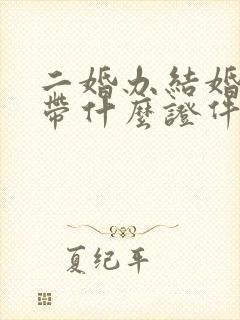 二婚办結婚
帶什麼證件
夏纪年